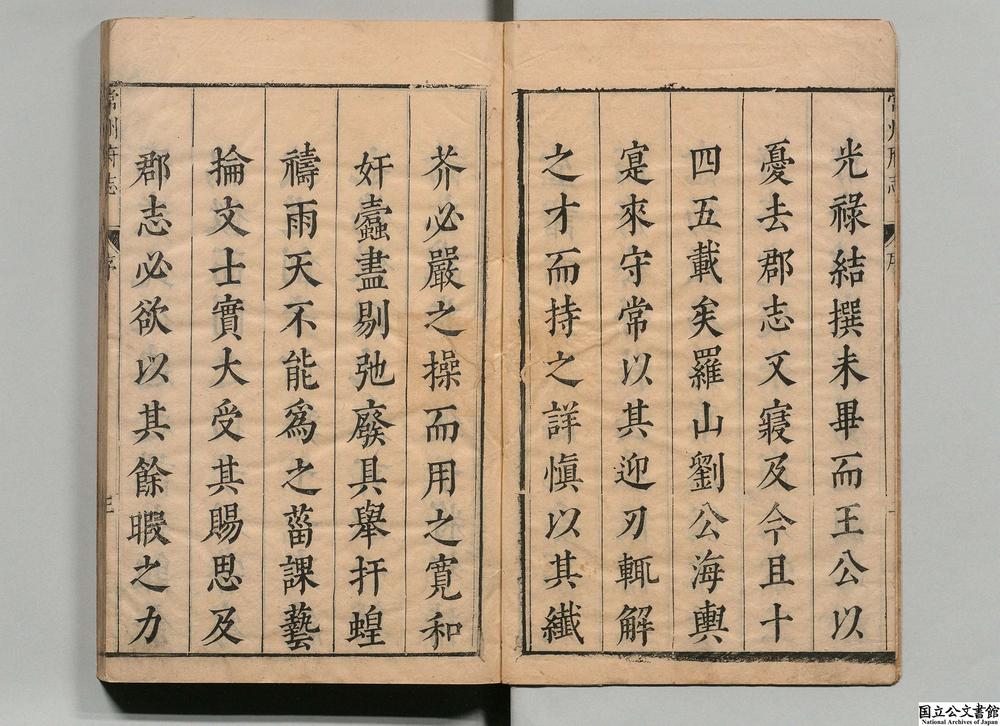 光祿結撰未畢而王公以
憂去郡志又寢及今且十
四五載矣羅山劉公海輿
寔來守常以其迎刃輒解
之才而持之詳慎以其纖
芥必嚴之操而用之寬和
奸蠹盡剔弛廢具舉扞蝗
禱雨天不能為之菑課藝
掄文士實大受其賜思及
郡志必欲以其餘暇之力
常州府志
序
三
国立公文書館
National Archives of Japan